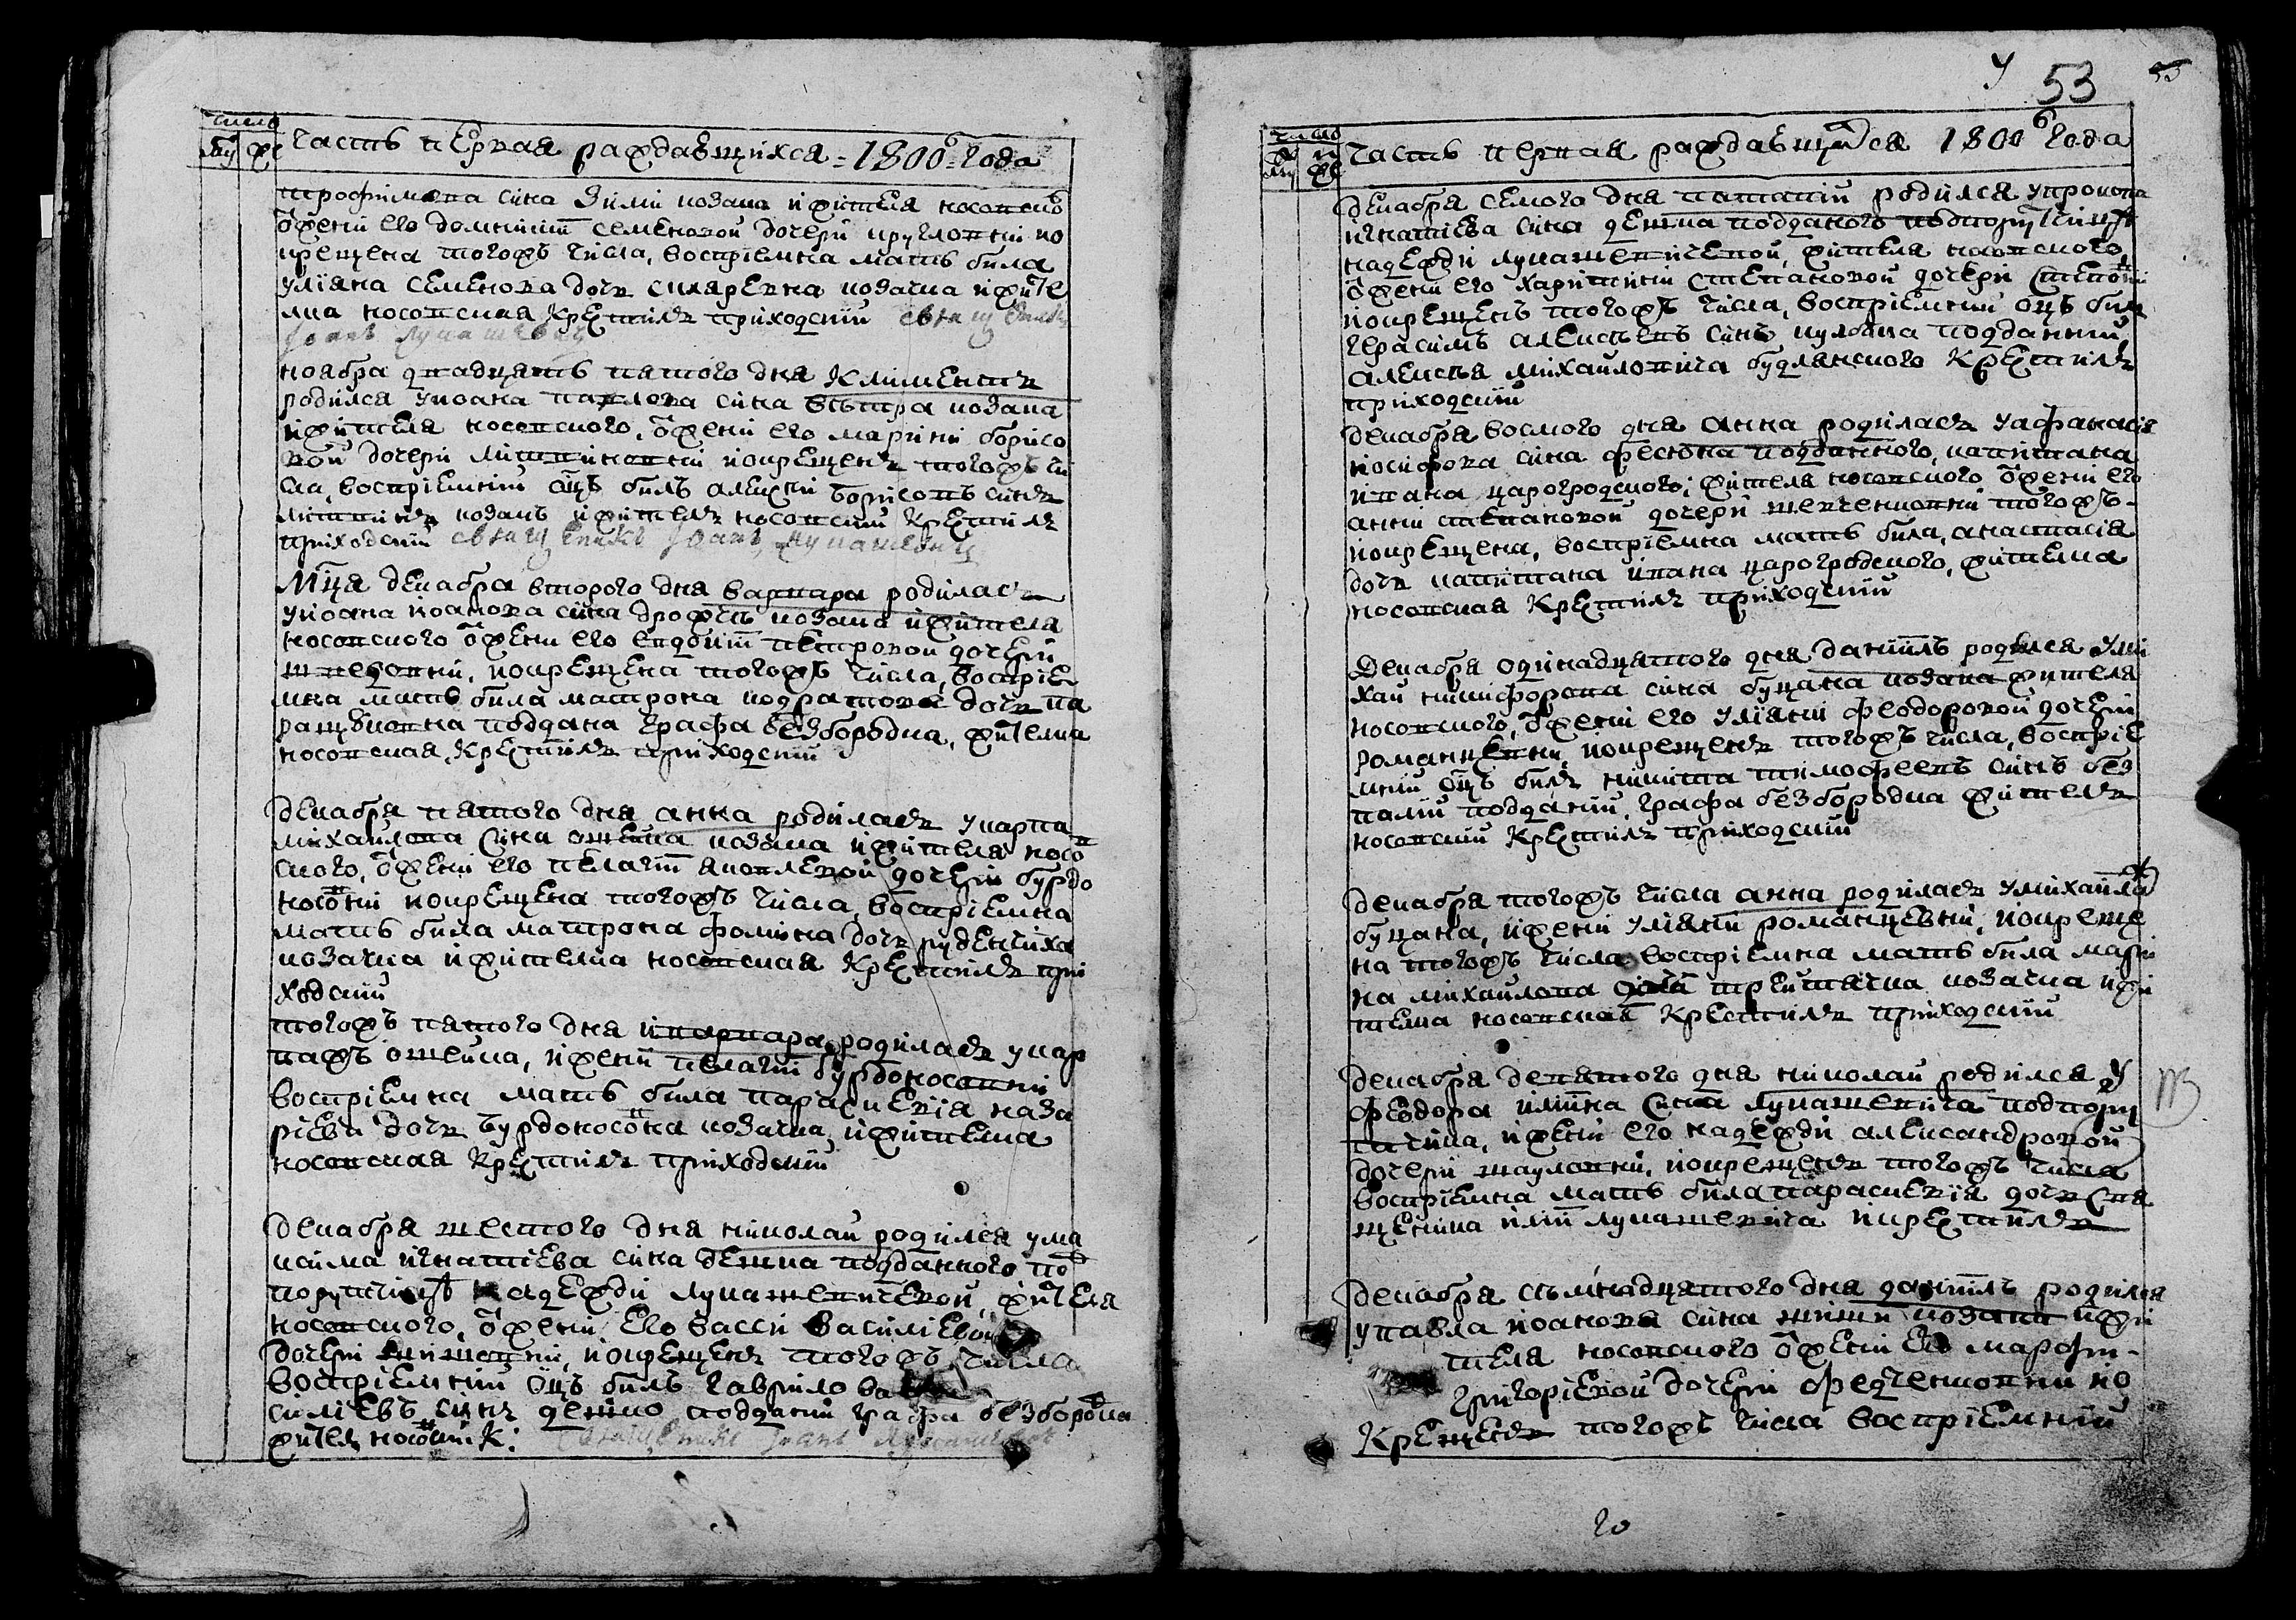 число
му же
Часть первая раждавшихся = 1800 = года
трофимова сина Зими козака и жителя носовско
ѿ жени его домникии семеновой дочери кругловни по
крещена тогожъ числа, восприемна мать била
улияна семенова дочь козачка и жите
лка носовская Крестилъ приходский священникъ
Иоанъ Лукашевичъ
ноября двадцять пятого дня Климентъ
родился у иоана павлова сина вѣтра козака
и жителя носовского, ѿ жени его марини борисо
вой дочери литвиновни и окрещенъ тогожъ чи
сла, восприемний оцъ билъ алексий борисовъ синъ
литвинъ козакъ и жителъ носовский Крестилъ
приходский священникъ Иоанъ Лукашевичъ
Мца декабря второго дня варвара родилась
у иоана иоанова сина дрофѣ козака и жителя
носовского ѿ жени его евдокии петровой дочери
шведовни, и окрещена тогожъ числа, восприе
мна мать била матрона кодратова дочь па
ращуковна подданка графа безбородка, жителка
носовская, Крестилъ приходский
декабря пятого дня анна родилась у карпа
михайлова сина ошейка козака и жителя носов
ского, ѿ жени его пелагии яковлевой дочери бурдо
носовни и окрещена тогожъ числа, восприемна
мать била матрона фомина дочь руденчиха
козачка и жителка носовская Крестилъ при
ходский
тогожъ пятого дня и варвара родилась у кар
пажъ ошейка, и жени пелагии бурдоносовни
восприемна мать била параскевия каза
риева дочь бурдоносовна козачка, и жителка
носовская Крестилъ приходский
декабря шестого дня николай родился у ма
ксима игнатиева сина деика подданного под
поручицѣ надежди лукашевичевой, жителя
носовского, ѿ жени его васси василиевой
дочери, и окрещенъ тогожъ числа
восприемний оцъ билъ гаврило ва
силиевъ синъ деико подданий графа безбородка
жител носовский К: Священникъ Иоанъ Лукашевичъ
53
число
му же
Часть первая раждавшихся 1800 года
декабря семого дня патапий родился у прокопа
игнатиева сина деика подданого подпоручицѣ
надежди лукашевичевой, жителя носовского
ѿ жени его харитини степановой дочери
и окрещенъ тогожъ числа, восприемний оцъ билъ
герасимъ алексѣевъ синъ кулбака подданний
алексѣя михайловича будлянского Крестилъ
приходский
декабря восмого дня анна родилась у афанасия
иосифова сина фесюна подданного, капитана
ивана царогродского, жителя носовского ѿ жени его
анни степановой дочери шевченковни тогожъ
и окрещена, восприемна мать била, анастасия
дочь капитана ивана царогродского, жителка
носовская Крестилъ приходский
Декабря одинадцятого дня даниилъ родился у ми
хаи никифорова сина буцака козака жителя
носовского, ѿ жени его улияни феодоровой дочери
романцевни, и окрещенъ тогожъ числа, восприе
мний оцъ билъ никита тимофеевъ синъ без
палий подданий, графа безбородка жителъ
носовский Крестилъ приходский
декабря тогожъ числа анна родилась у михаила
буцака, и жени улияни романцевни, и окреще
на тогожъ числа восприемна мать била мари
на михайлова дочь козачка и жи
телка носовская Крестилъ приходский
декабря девятого дня николай родился у
феодора илиина сина лукашевича подпору
тчика, и жени его надежди александровой
дочери шауловни, и окрещенъ тогожъ числа
восприемна мать била параскевия дочь свя
щеника илии лукашевича и крестилъ
декабря сѣмнадцятого дня даниилъ родился
у павла иоанова сина козака и жи
теля носовского ѿ жени его марфи
григориевой дочери федченковни по
Крещенъ тогожъ числа восприемний
20